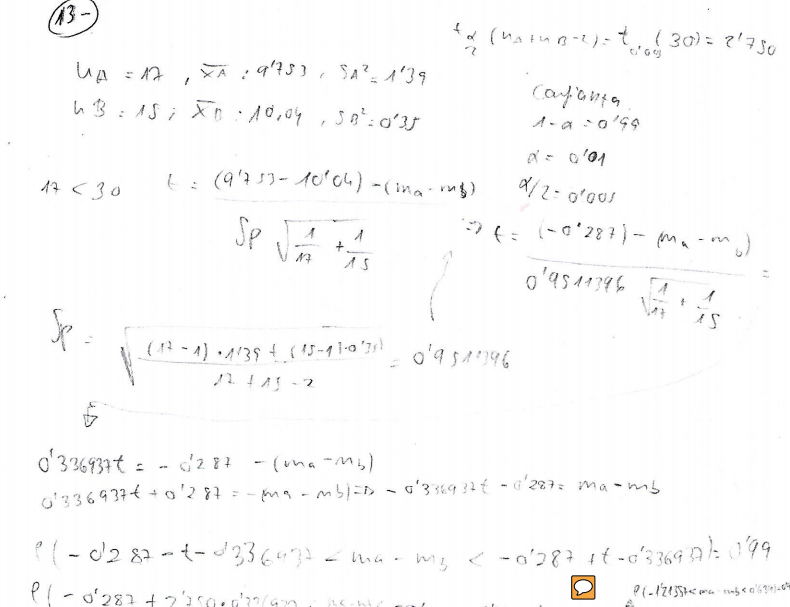 13-
t α/2 (nA+nB-2) = t 0'005 (30) = 2'750
nA = 17 , X̄A : 9'753 , SA² = 1'39
nB : 15 ; X̄B : 10,04 , SB² = 0'35
Confianza
1-α = 0'99
α = 0'01
α/2 = 0'005
17 < 30 t = (9'753 - 10'04) - (ma - mb) / Sp √(1/17 + 1/15)
=> t = (-0'287) - (ma - mb) / 0'9511396 √(1/17 + 1/15) =
Sp = √((17-1)·1'39 + (15-1)·0'35 / 17+15-2) = 0'9511396
0'336937t = -0'287 - (ma - mb)
0'336937t + 0'287 = -(ma - mb) => -0'336937t - 0'287 = ma - mb
P(-0'287 - t·0'336937 < ma - mb < -0'287 + t·0'336937) = 0'99
P(-0'287 + 2'750·0'336937